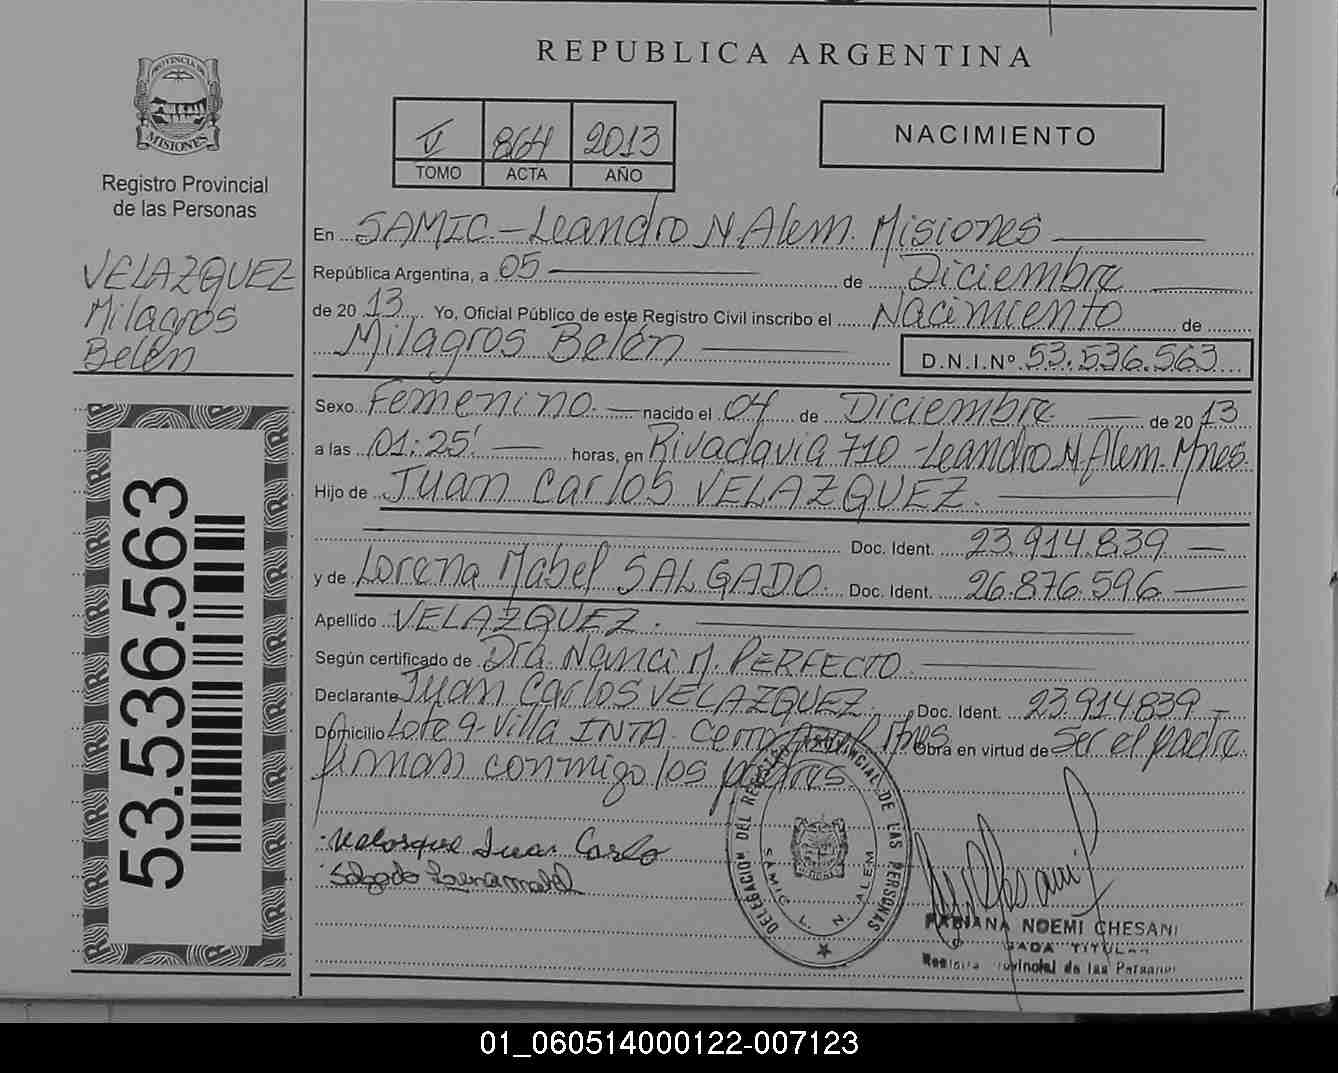 REPUBLICA ARGENTINA
PROVINCIA DE MISIONES
Registro Provincial
de las Personas
VELAZQUEZ
Milagros
Belén
53.536.563
II 864 2013
TOMO ACTA AÑO
NACIMIENTO
En SAMIC - Leandro N. Alem. Misiones
República Argentina, a 05 de Diciembre
de 20 13 Yo, Oficial Público de este Registro Civil inscribo el Nacimiento de
Milagros Belén D.N.I.Nº 53.536.563
Sexo Femenino. nacido el 04 de Diciembre de 20 13
a las 01:25' horas, en Rivadavia 710 - Leandro N. Alem. Mnes.
Hijo de Juan Carlos VELAZQUEZ.
Doc. Ident. 23.914.839
y de Lorena Mabel SALGADO. Doc. Ident. 26.876.596
Apellido VELAZQUEZ.
Según certificado de Dra. Nanci M. PERFECTO.
Declarante Juan Carlos VELAZQUEZ. Doc. Ident. 23.914.839
Domicilio Lote 9 - Villa INTA. Cerro Azul Mnes. Obra en virtud de Ser el padre.
firman conmigo los padres.
Velasque Juan Carlo
Salgado Lorena Mabel
DELEGACION DEL REGISTRO PROVINCIAL DE LAS PERSONAS
SAMIC L. N. ALEM
FABIANA NOEMI CHESANI
TITULAR
Registro Provincial de las Personas
01_060514000122-007123